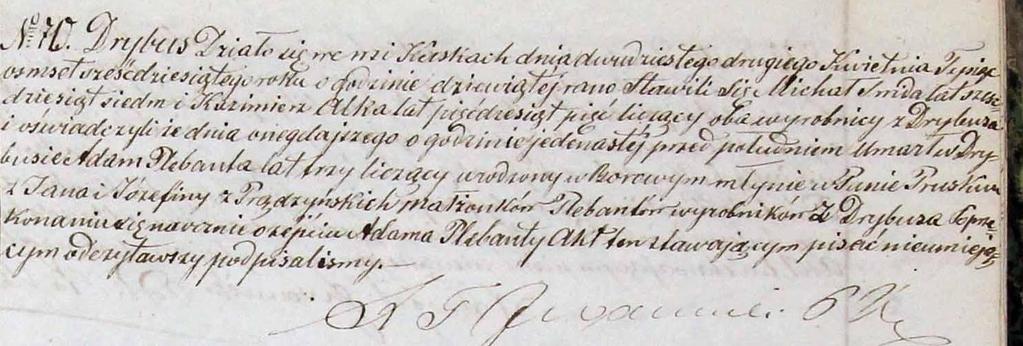 No 70. Drybus Działo się we wsi Kuskach dnia dwudziestego drugiego Kwietnia Tysiąc
osmset sześćdziesiątego roku o godzinie dziewiątej rano Stawili Się Michał Smiza lat sześć
dziesiąt siedm i Kazimierz Alka lat pięćdziesiąt pięć liczący oba wyrobnicy z Drybusa
i oświadczyli że dnia onegdajszego o godzinie jedenastej przed południem Umarł w Dry
busie Adam Plebanta lat trzy liczący urodzony w Borowym młynie w Pruskim
z Jana i Józefiny z Prądzyńskich małżonków Plebantów wyrobników Z Drybusa Po prze
konaniu się naocznie o zejściu Adama Plebanty Akt ten stawającym pisać nieumieją
cym odczytawszy podpisalismy.—